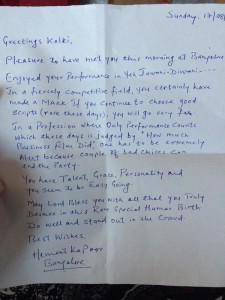 Sunday, 17/08/
Greetings Kalki,
Pleasure to have met you this morning at Bangalore
Enjoyed your Performance in Yeh Jawani-Diwani---
In a fiercely competitive field, you certainly have
made a Mark. If you continue to choose good
Scripts (rare these days), you will go very far.
In a Profession where Only Performance Counts
Which these days is judged by "How much
Business Film Did", one has to be extremely
Alert because couple of bad choices can
end the Party.
You have Talent, Grace, Personality and
you seem to be Easy Going.
May Lord Bless you with all that you Truly
Deserve in this Rare Special Human Birth
Do well and stand out in the Crowd.
Best Wishes
Hemant Kapoor
Bangalore